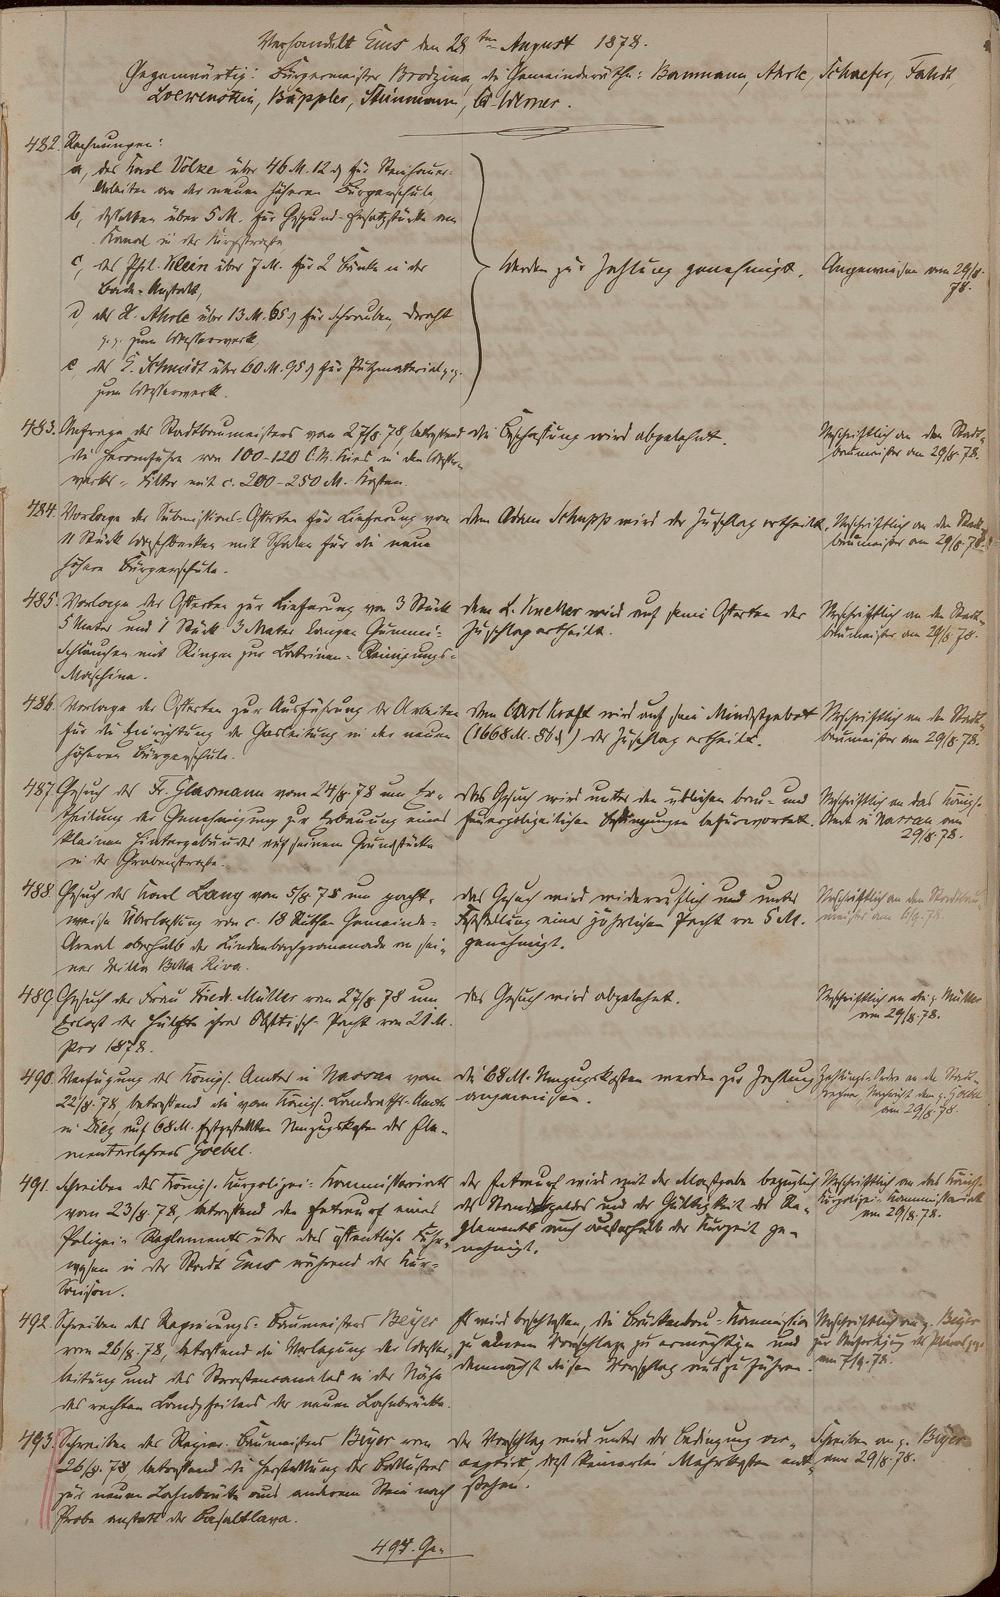 Verhandelt Ems den 28ten August 1878.
Gegenwärtig: Bürgermeister Brodzina, die Gemeinderäthe: Baumann, Ahrle, Schaefer, Faust
Loewenstein, Bäppler, Steinmann, A. Werner.
482. Rechnungen:
a, des Karl Völke über 46 M. 12 ₰ für Steinhauer-
Arbeiten an der neuen höheren Bürgerschule
b, desselben über 5 M. für
Kanal in der Kirchstraße
c, des Phil. Klein über 7 M. für 2 Bänke in der
Bade-Anstalt,
d, des H. Ahrle über 13 M. 65 ₰ für Schrauben, Draht
p.p. zum Wasserwerk,
e, des C. Schmidt über 60 M. 95 ₰ für Putzmaterial p.p.
zum Wasserwerk.
Werden zur Zahlung genehmigt.
Angewiesen am 29/8.
78.
483. Anfrage des Stadtbaumeisters vom 27/8.78, betreffend
die Heranfuhr von 100-120 C.M. Kies in den Wasser-
werks-Filter mit c. 200-250 M. Kosten.
die Beschaffung wird abgelehnt.
Abschriftlich an den Stadt-
baumeister am 29/8.78.
484. Vorlage der Submissions-Offerten für Lieferung von
11 Stück Waschbecken mit Schalen für die neue
höhere Bürgerschule.
dem Adam Schupp wird der Zuschlag ertheilt.
Abschriftlich an den Stadt-
baumeister am 29/8.78.
485. Vorlage der Offerten zur Lieferung von 3 Stück
5 Meter und 1 Stück 3 Meter langen Gummi-
schläuchen mit Ringen zur Latrinen-Reinigungs-
Maschine.
dem L. Kneller wird auf seine Offerten der
Zuschlag ertheilt.
Abschriftlich an den Stadt-
baumeister am 29/8.78.
486. Vorlage der Offerten zur Ausführung der Arbeiten
für die Einrichtung der Gasleitung in der neuen
höheren Bürgerschule.
dem Carl Kraft wird auf sein Mindestgebot
(1668 M. 80 ₰) der Zuschlag ertheilt.
Abschriftlich an den Stadt-
baumeister am 29/8.78.
487. Gesuch des Fr. Glasmann vom 24/8.78 um Er-
theilung der Genehmigung zur Erbauung eines
kleinen Hintergebäudes auf seinem Grundstücke
in der Grabenstraße.
das Gesuch wird unter den üblichen bau- und
feuerpolizeilichen Bedingungen befürwortet.
Abschriftlich an das Königl.
Amt in Nassau am
29/8.78.
488. Gesuch des Karl Lang vom 5/8.78 um pacht-
weise Überlassung von c. 18 Ruthen Gemeinde-
Areal oberhalb der Lindenbachpromenade an sei-
ner Villa Bella Riva.
das Gesuch wird widerruflich und unter
Feststellung einer jährlichen Pacht von 5 M.
genehmigt.
Abschriftlich an den Stadtbau-
meister am 6/9.78.
489. Gesuch der Frau Friedr. Müller vom 27/8.78 um
Erlaß der Hälfte ihrer Obsttisch-Pacht von 20 M.
pro 1878.
das Gesuch wird abgelehnt.
Abschriftlich an die p. Müller
am 29/8.78.
490. Verfügung des Königl. Amtes in Nassau vom
22/8.78, betreffend die vom Königl. Landraths-Amte
in Diez auf 68 M. festgestellten Umzugskosten des Ele-
mentarlehrers Goebel.
die 68 M. Umzugskosten werden zur Zahlung
angewiesen.
Zahlungs-Ordre an die Stadt-
rechner, Nachricht dem p. Goebel
am 29/8.78.
491. Schreiben des Königl. Kurpolizei-Kommissariats
vom 23/8.78, betreffend den Entwurf eines
Polizei-Reglements über das öffentliche Fuhr-
wesen in der Stadt Ems während der Kur-
Saison.
der Entwurf wird mit der Maßgabe bezüglich
des Standgeldes und der Gültigkeit des Re-
glements auch außerhalb der Kurzeit ge-
nehmigt.
Abschriftlich an das Königl.
Kurpolizei-Kommissariat
am 29/8.78.
492. Schreiben des Regierungs-Baumeisters Beyer
vom 26/8.78, betreffend die Verlegung der Wasser-
leitung und des Straßencanales in der Nähe
des rechten Landpfeilers der neuen Lahnbrücke.
Es wird beschlossen, die Brückenbau-Kommission
zu einem Vorschlage zu ermächtigen und
demnächst diesen Vorschlag auszuführen.
Abschriftlich an p. Beyer
zur Anfertigung des Planes p.p.
am 7/9.78.
493. Schreiben des Regier. Baumeisters Beyer vom
26/8.78, betreffend die Herstellung der Ballustres
zur neuen Lahnbrücke aus anderem Stein nach
Probe anstatt der Basaltlava.
Der Vorschlag wird unter der Bedingung ac-
ceptirt, daß keinerlei Mehrkosten ent-
stehen.
Schreiben an p. Beyer
am 29/8.78.
494. Ge-